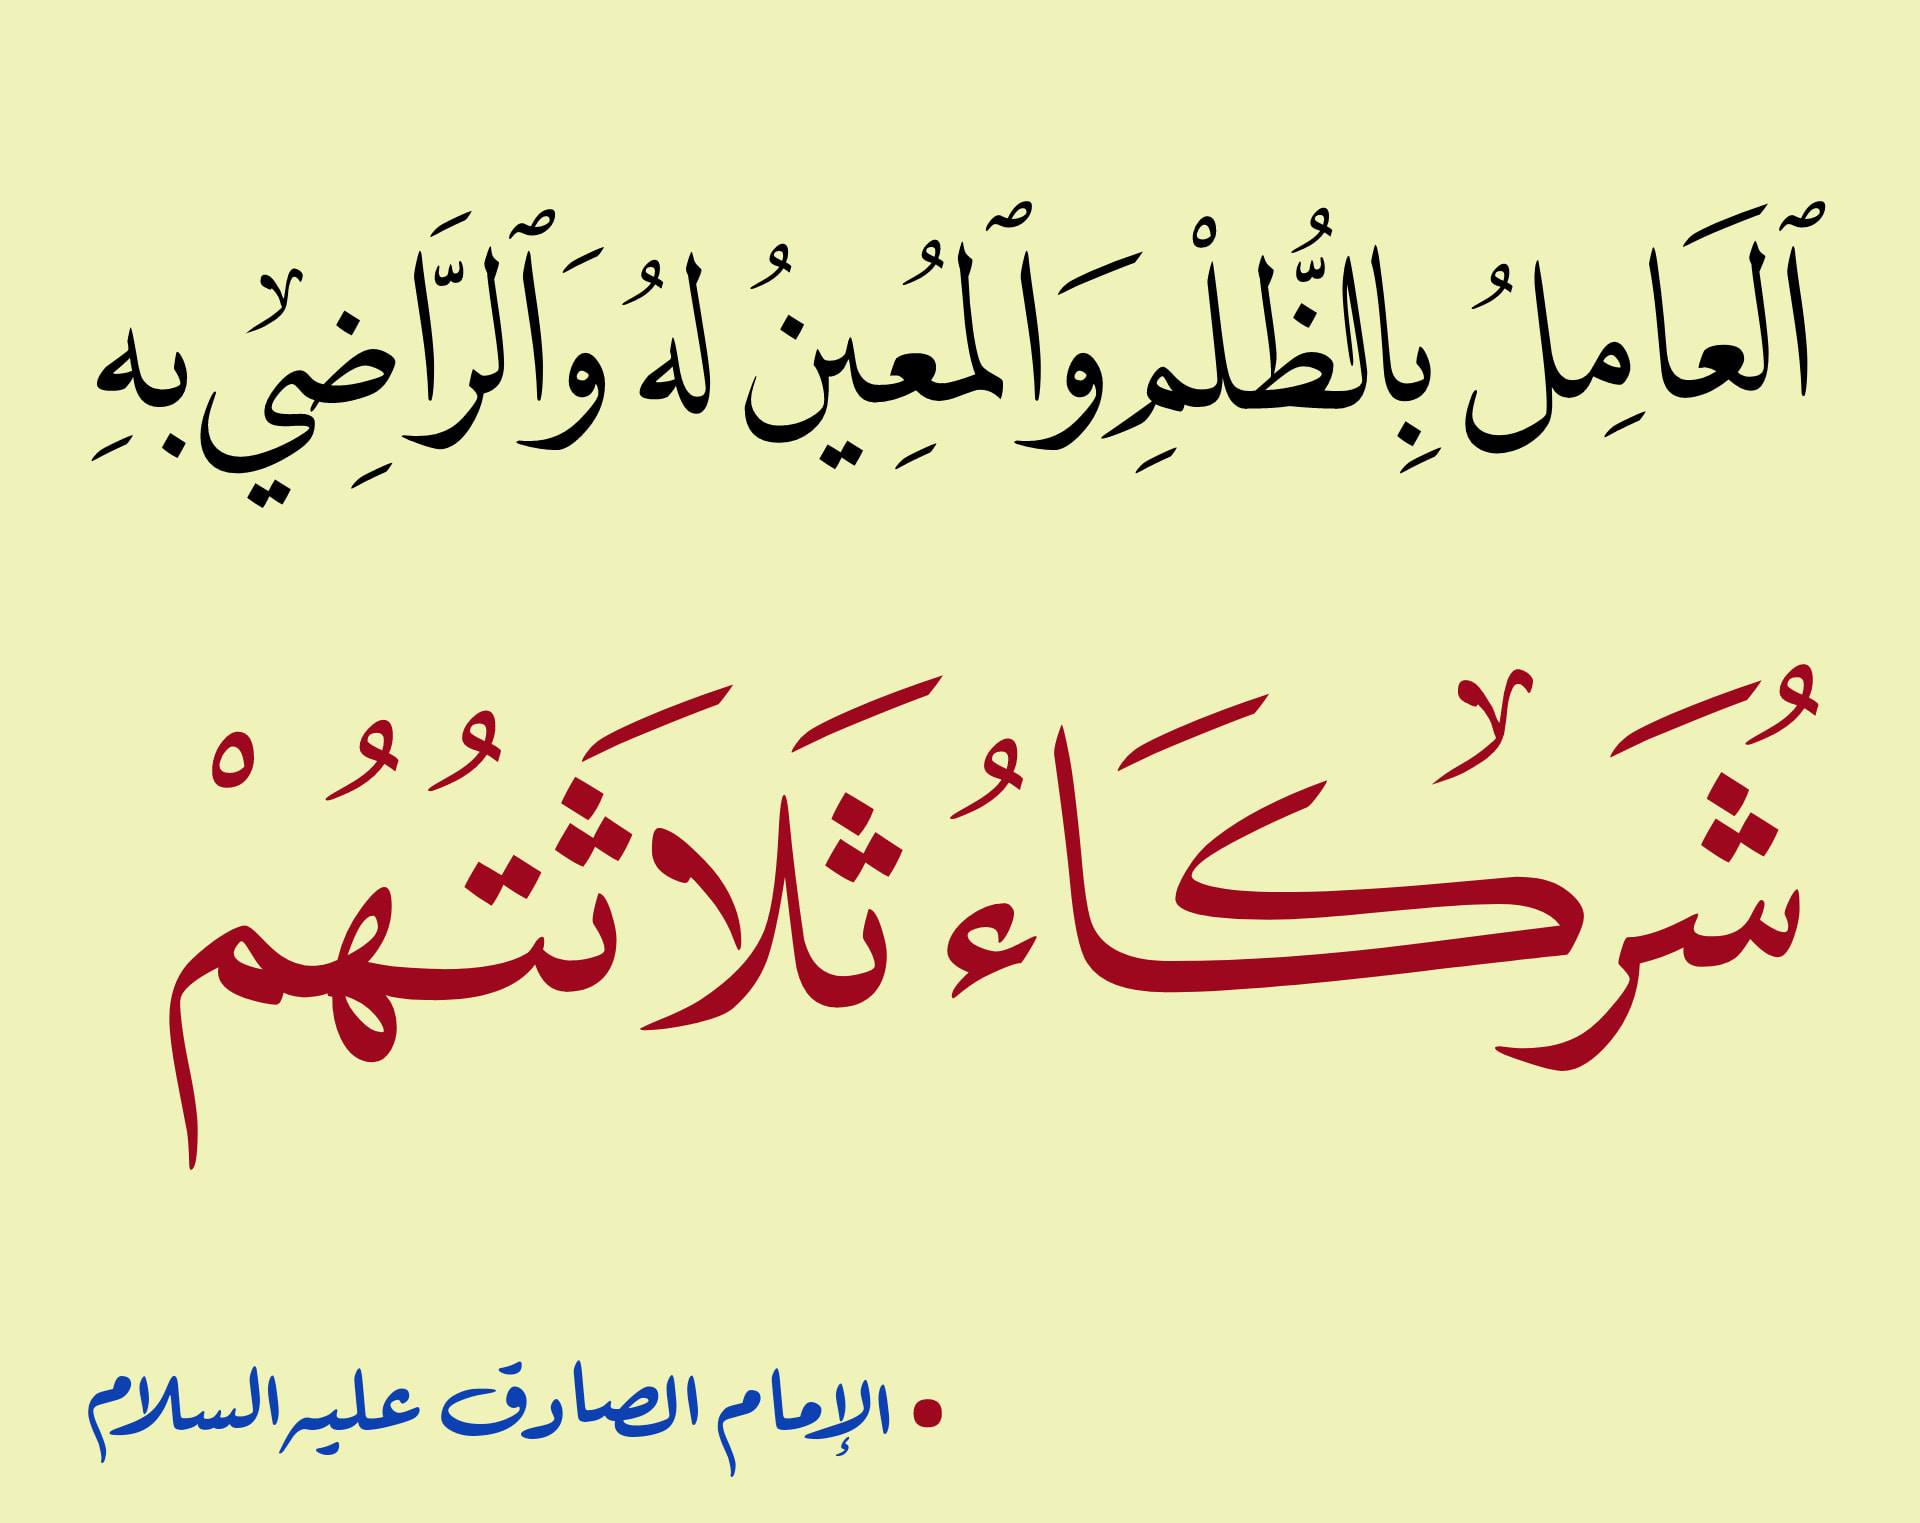 ٱلْعَامِلُ بِالظُّلْمِ وَٱلْمُعِينُ لَهُ وَٱلرَّاضِيُ بِهِ
شُرَكَاءُ ثَلَاثَتُهُمْ
• الإمام الصادق عليه السلام